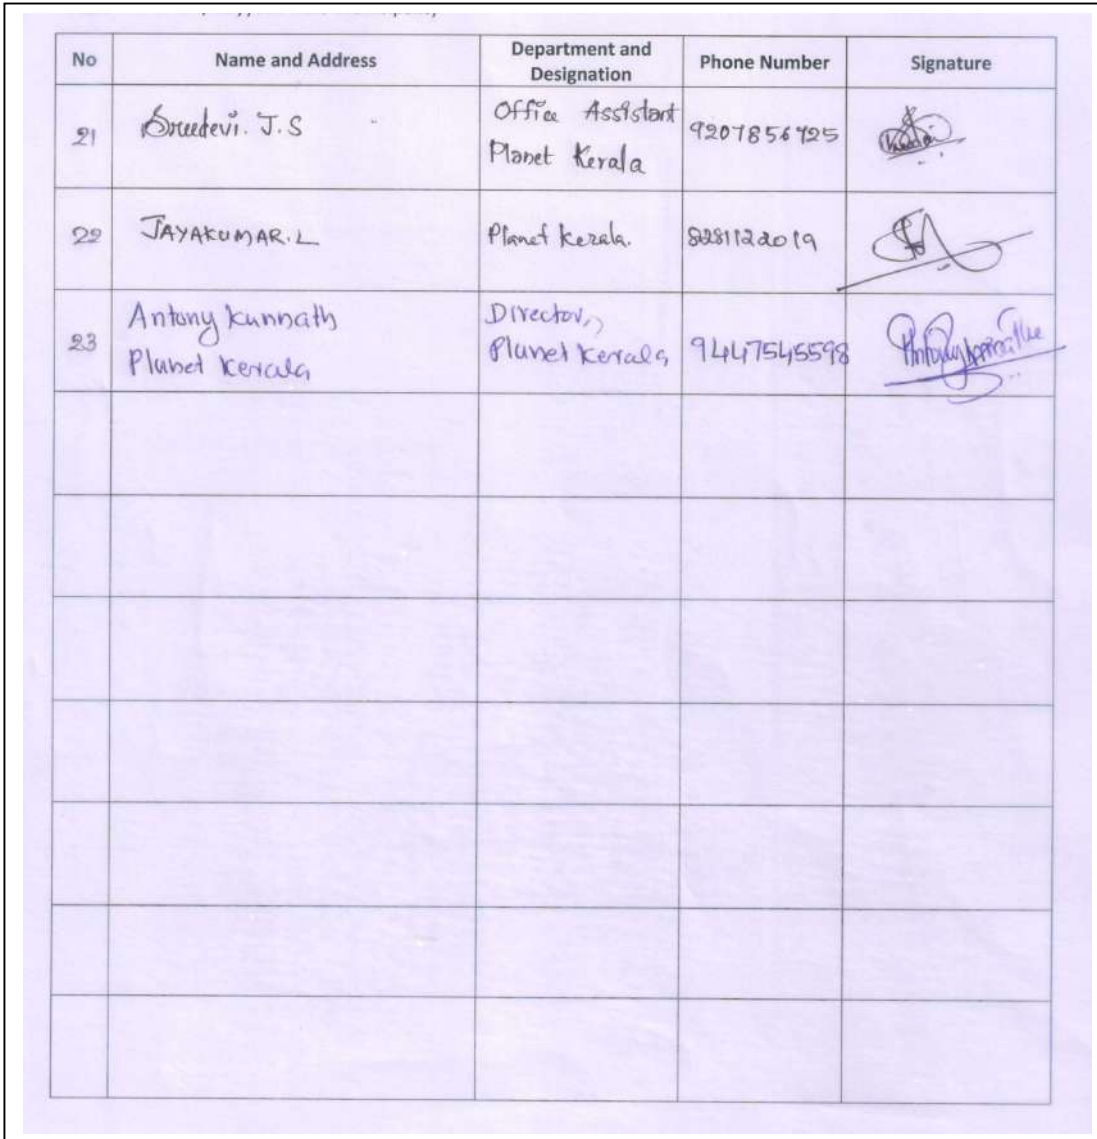 No Name and Address Department and Designation Phone Number Signature
21 Sreedevi. J.S Office Assistant Planet Kerala 9207856725
22 JAYAKUMAR. L Planet Kerala. 8281122019
23 Antony Kunnath Planet Kerala Director, Planet Kerala 9447545598